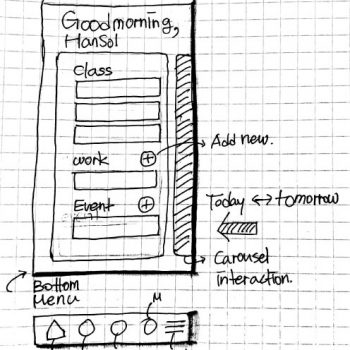 Goodmorning,
HanSol
Class
work
Add new.
Event
Today ↔ tomorrow
Carousel
interaction.
Bottom
Menu
M